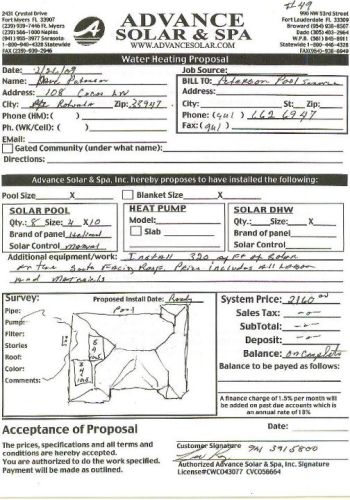 #49
2431 Crystal Drive
Fort Myers FL 33907
(239) 939-7446 ft. Myers
(239) 591-1666 Naples
(941) 955-3977 Sarasota
1-800-940-4328 Statewide
FAX (239)-939-2946
ADVANCE
SOLAR & SPA
WWW.ADVANCESOLAR.COM
990 NW 53rd Street
Fort Lauderdale FL 33309
Broward (954) 938-8507
Dade (305) 403-2964
W.P.B. (561) 845-8911
Statewide 1-800-446-4328
Water Heating Proposal
Date: Job Source:
Name: BILL TO: Peterson Pool Service
Address: 108 LN Address:
City: Zip: City: St: Zip:
Phone (HM): ( ) Phone: (941) 162 6947
Ph. (WK/Cell): ( ) Fax: (941)
EMail:
Gated Community (under what name):
Directions:
Advance Solar & Spa, Inc. hereby proposes to have installed the following:
Pool Size X Blanket Size X
SOLAR POOL HEAT PUMP SOLAR DHW
Qty.: 8 Size: 4 X10 Model: Qty.: Size: X
Brand of panel Slab Brand of panel
Solar Control manual Solar Control
Additional equipment/work: Install 320 sq Ft of Solar
on the South Facing Roof. Price includes all Labor
and Materials
Survey: Proposed Install Date: Ready System Price: 2160.00
Pipe: Pool Sales Tax:
Pump: SubTotal:
Filter: Deposit:
Stories Balance: on Complete
Roof: Balance to be payed as follows:
Color:
Comments:
A finance charge of 1.5% per month
will be added on past due accounts which is
an annual rate of 18%
Acceptance of Proposal Date:
The prices, specifications and all terms and
conditions are hereby accepted.
You are authorized to do the work specified.
Payment will be made as outlined.
Customer Signature 941 3915800
Authorized Advance Solar & Spa, Inc. Signature
License#CWC043077 CVC056664